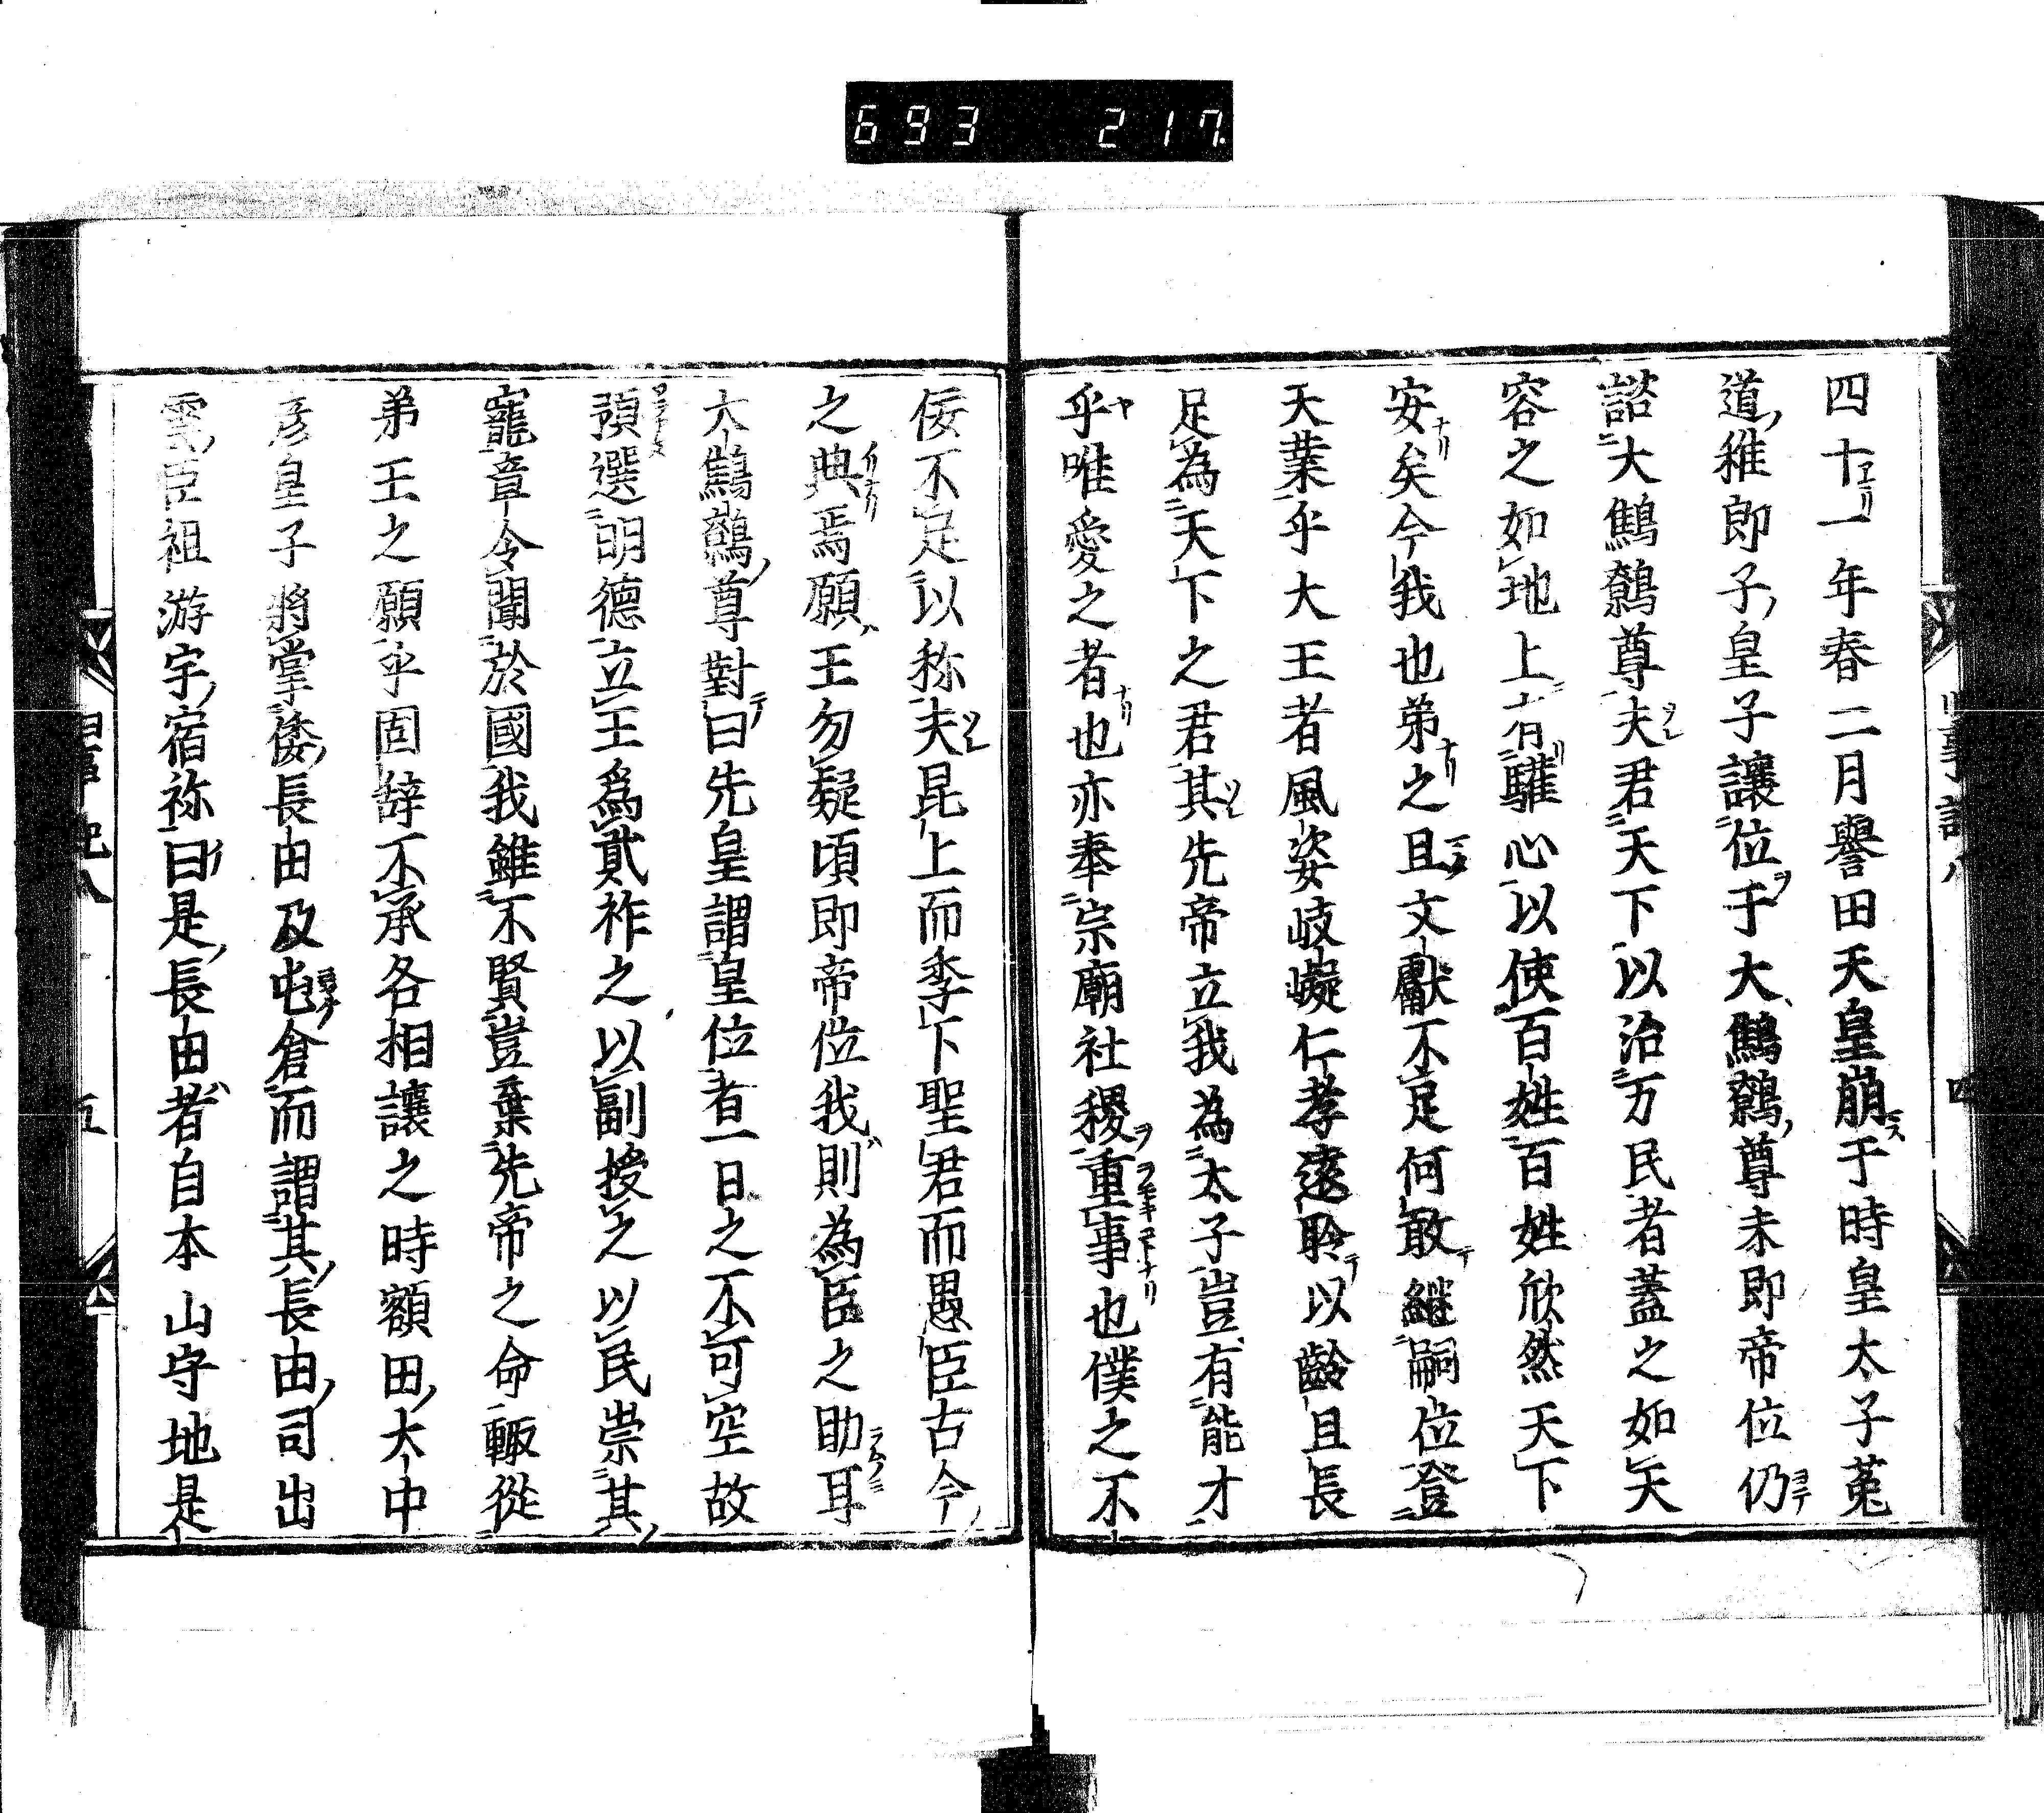 693 217
四十一年春二月譽田天皇崩于時皇太子菟
道稚郎子皇子讓位于大鷦鷯尊未即帝位仍
諮大鷦鷯尊夫君天下以治万民者蓋之如天
容之如地上有驩心以使百姓百姓欣然天下
安矣今我也弟之且文獻不足何敢継嗣位登
天業乎大王者風姿岐嶷仁孝遠聆以齡且長
足為天下之君其先帝立我為太子豈有能才
乎唯愛之者也亦奉宗廟社稷重事也僕之不
佞不足以称夫昆上而季下聖君而愚臣古今
之典焉願王勿疑頃即帝位我則為臣之助耳
大鷦鷯尊對曰先皇謂皇位者一日之不可空故
預選明德立王爲貳祚之以副授之以民崇其
寵章令聞於國我雖不賢豈棄先帝之命輙從
弟王之願乎固辞不承各相讓之時額田大中
彦皇子將掌倭長由及屯倉而謂其長由司出
雲臣祖游宇宿祢曰是長由者自本山守地是